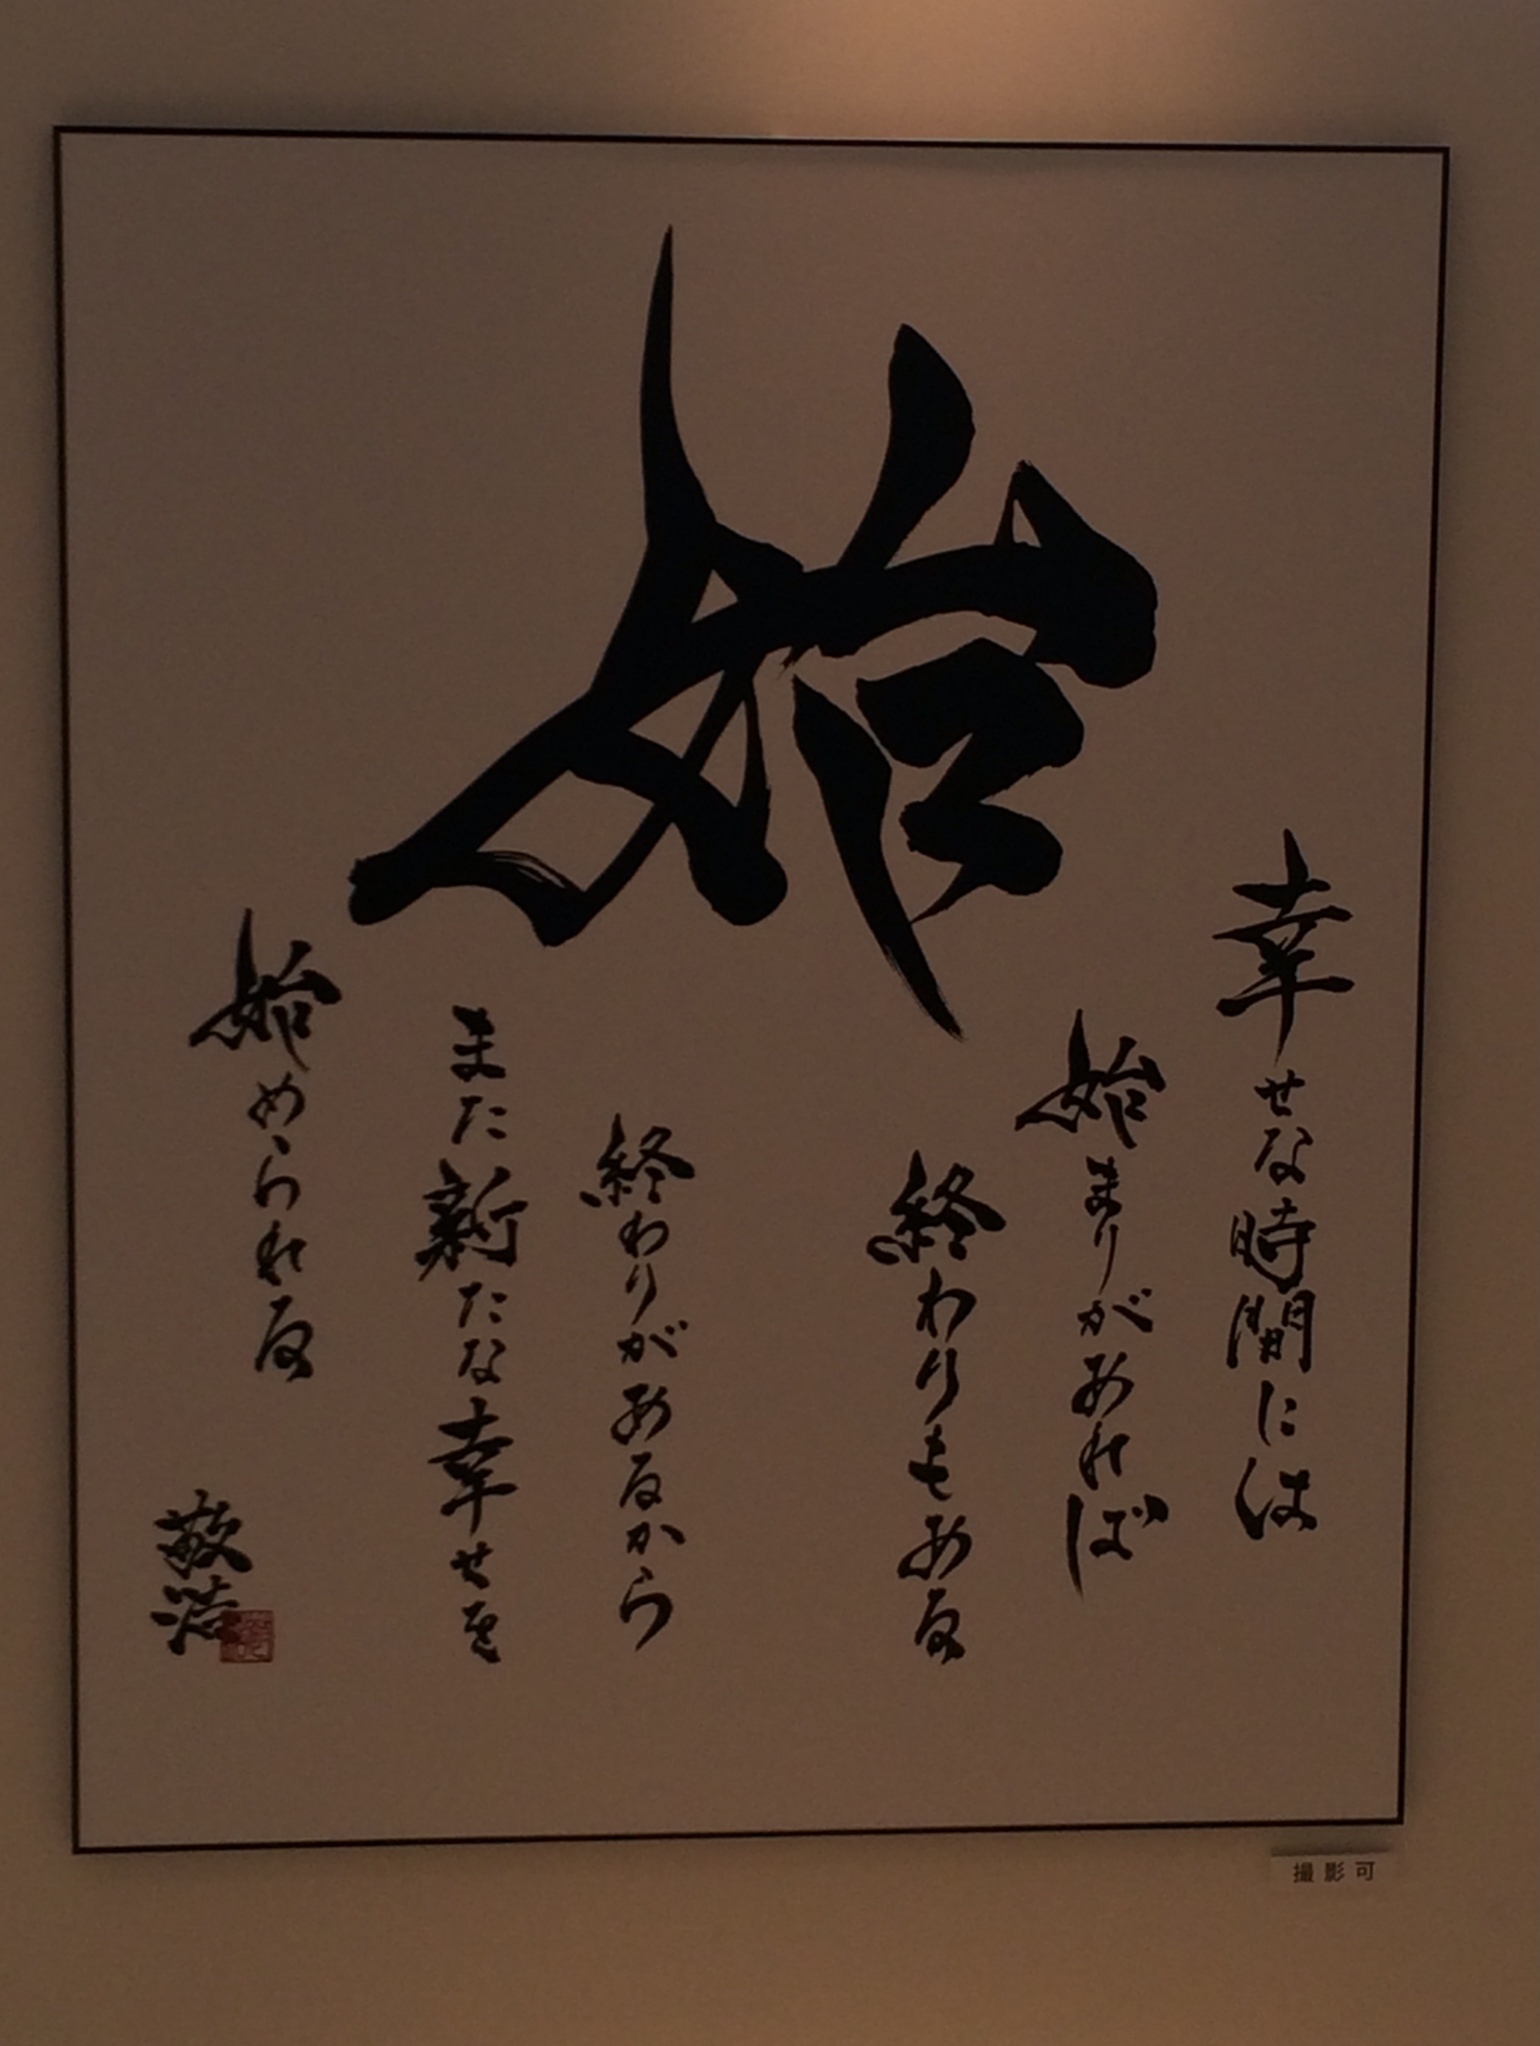 始
幸せな時間には
始まりがあれば
終わりもある
終わりがあるから
また新たな幸せを
始められる
敬浩
撮影可